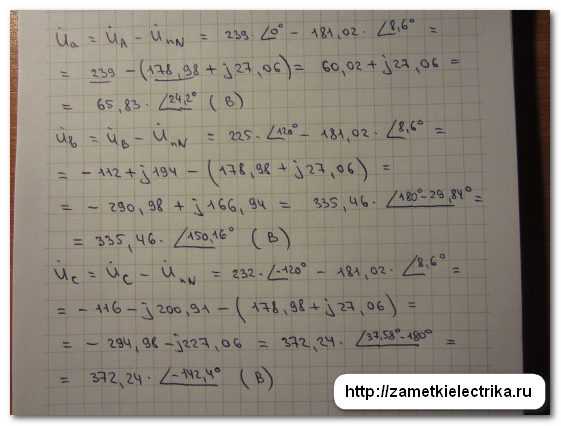 U̇a = U̇A − U̇nN = 239·∠0° − 181,02·∠8,6° =
= 239 − (178,98 + j27,06) = 60,02 + j27,06 =
= 65,83·∠24,2° (В)
U̇в = U̇В − U̇nN = 225·∠120° − 181,02·∠8,6° =
= −112 + j194 − (178,98 + j27,06) =
= −290,98 + j166,94 = 335,46·∠180°−29,84° =
= 335,46·∠150,16° (В)
U̇c = U̇C − U̇nN = 232·∠−120° − 181,02·∠8,6° =
= −116 − j200,91 − (178,98 + j27,06) =
= −294,98 − j227,06 = 372,24·∠37,58°−180° =
= 372,24·∠−142,4° (В)
http://zametkielectrika.ru